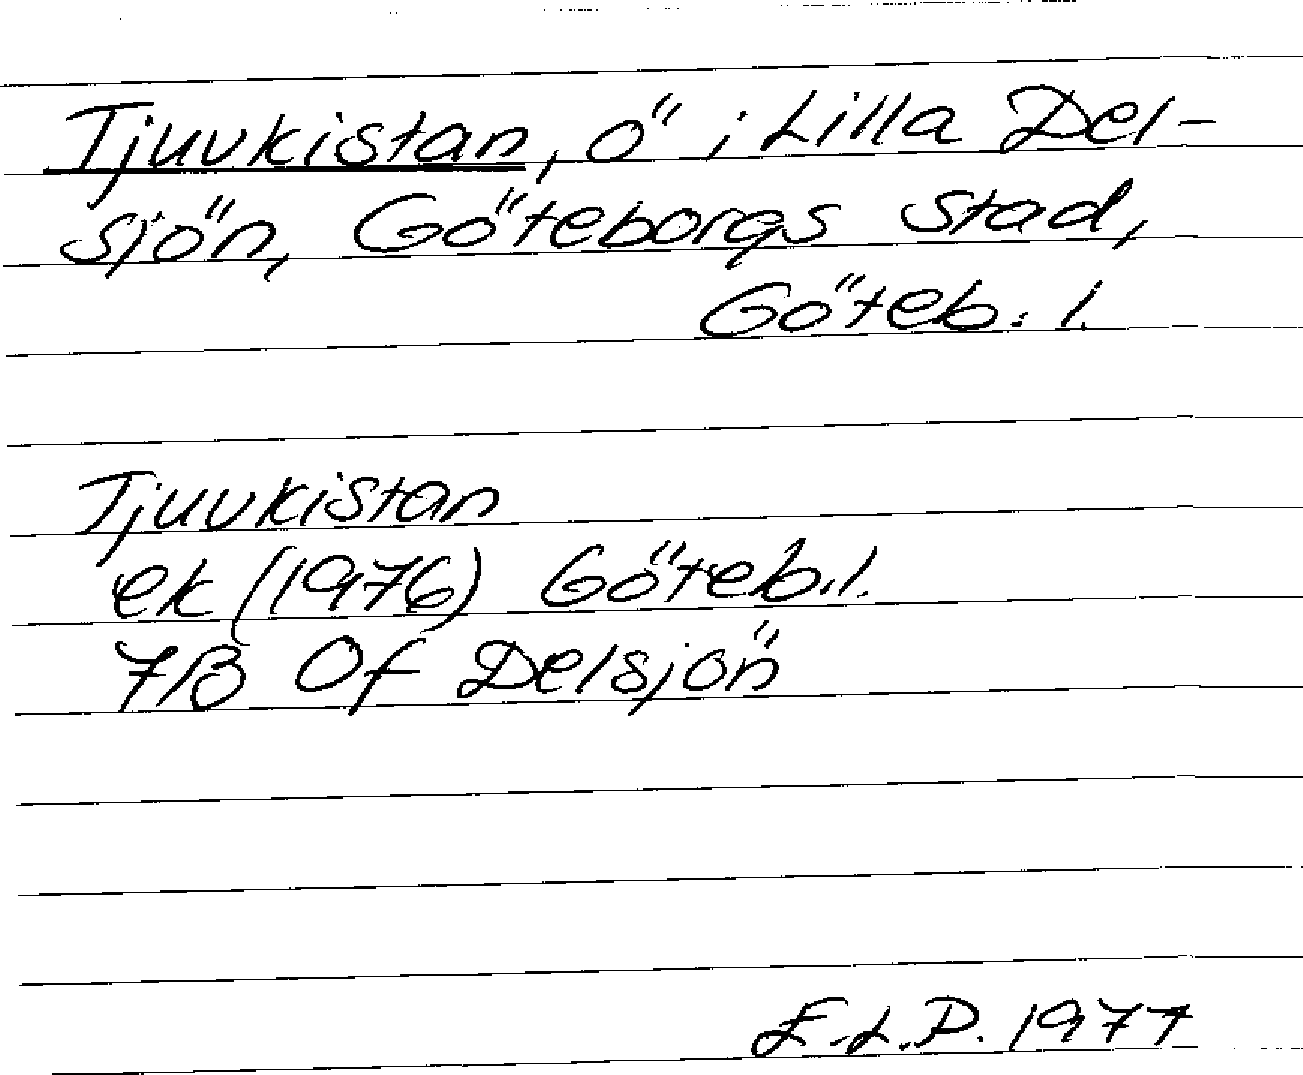 Tjuvkistan, ö i Lilla Del-
sjön, Göteborgs stad,
Göteb: l.
Tjuvkistan
ek (1976) Göteb. l.
7B Of Delsjön
E.L.P. 1977